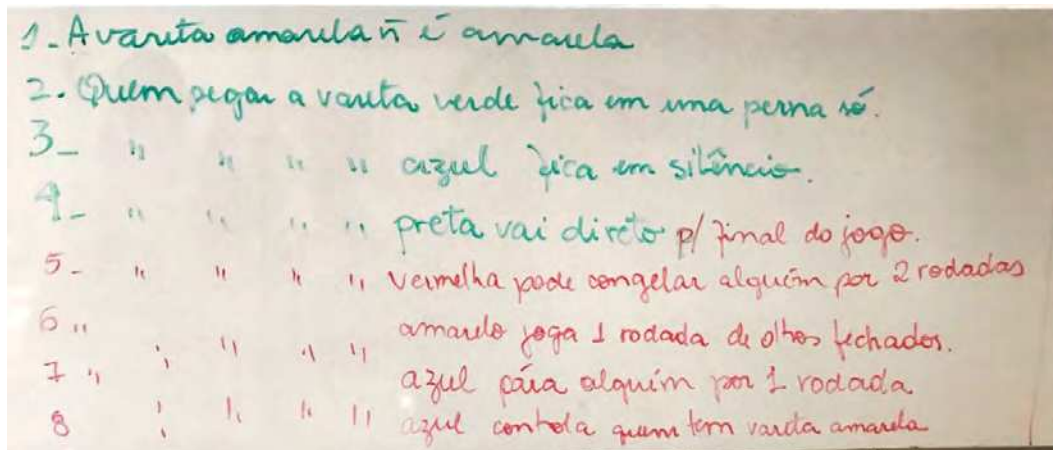 1- A vareta amarela ñ é amarela
2- Quem pegar a vareta verde fica em uma perna só.
3- " " " " azul fica em silêncio.
4- " " " " preta vai direto p/ final do jogo.
5- " " " " vermelha pode congelar alguém por 2 rodadas
6 " " " " " amarelo joga 1 rodada de olhos fechados.
7 " " " " " azul pára alguém por 1 rodada
8 " " " " azul controla quem tem vareta amarela